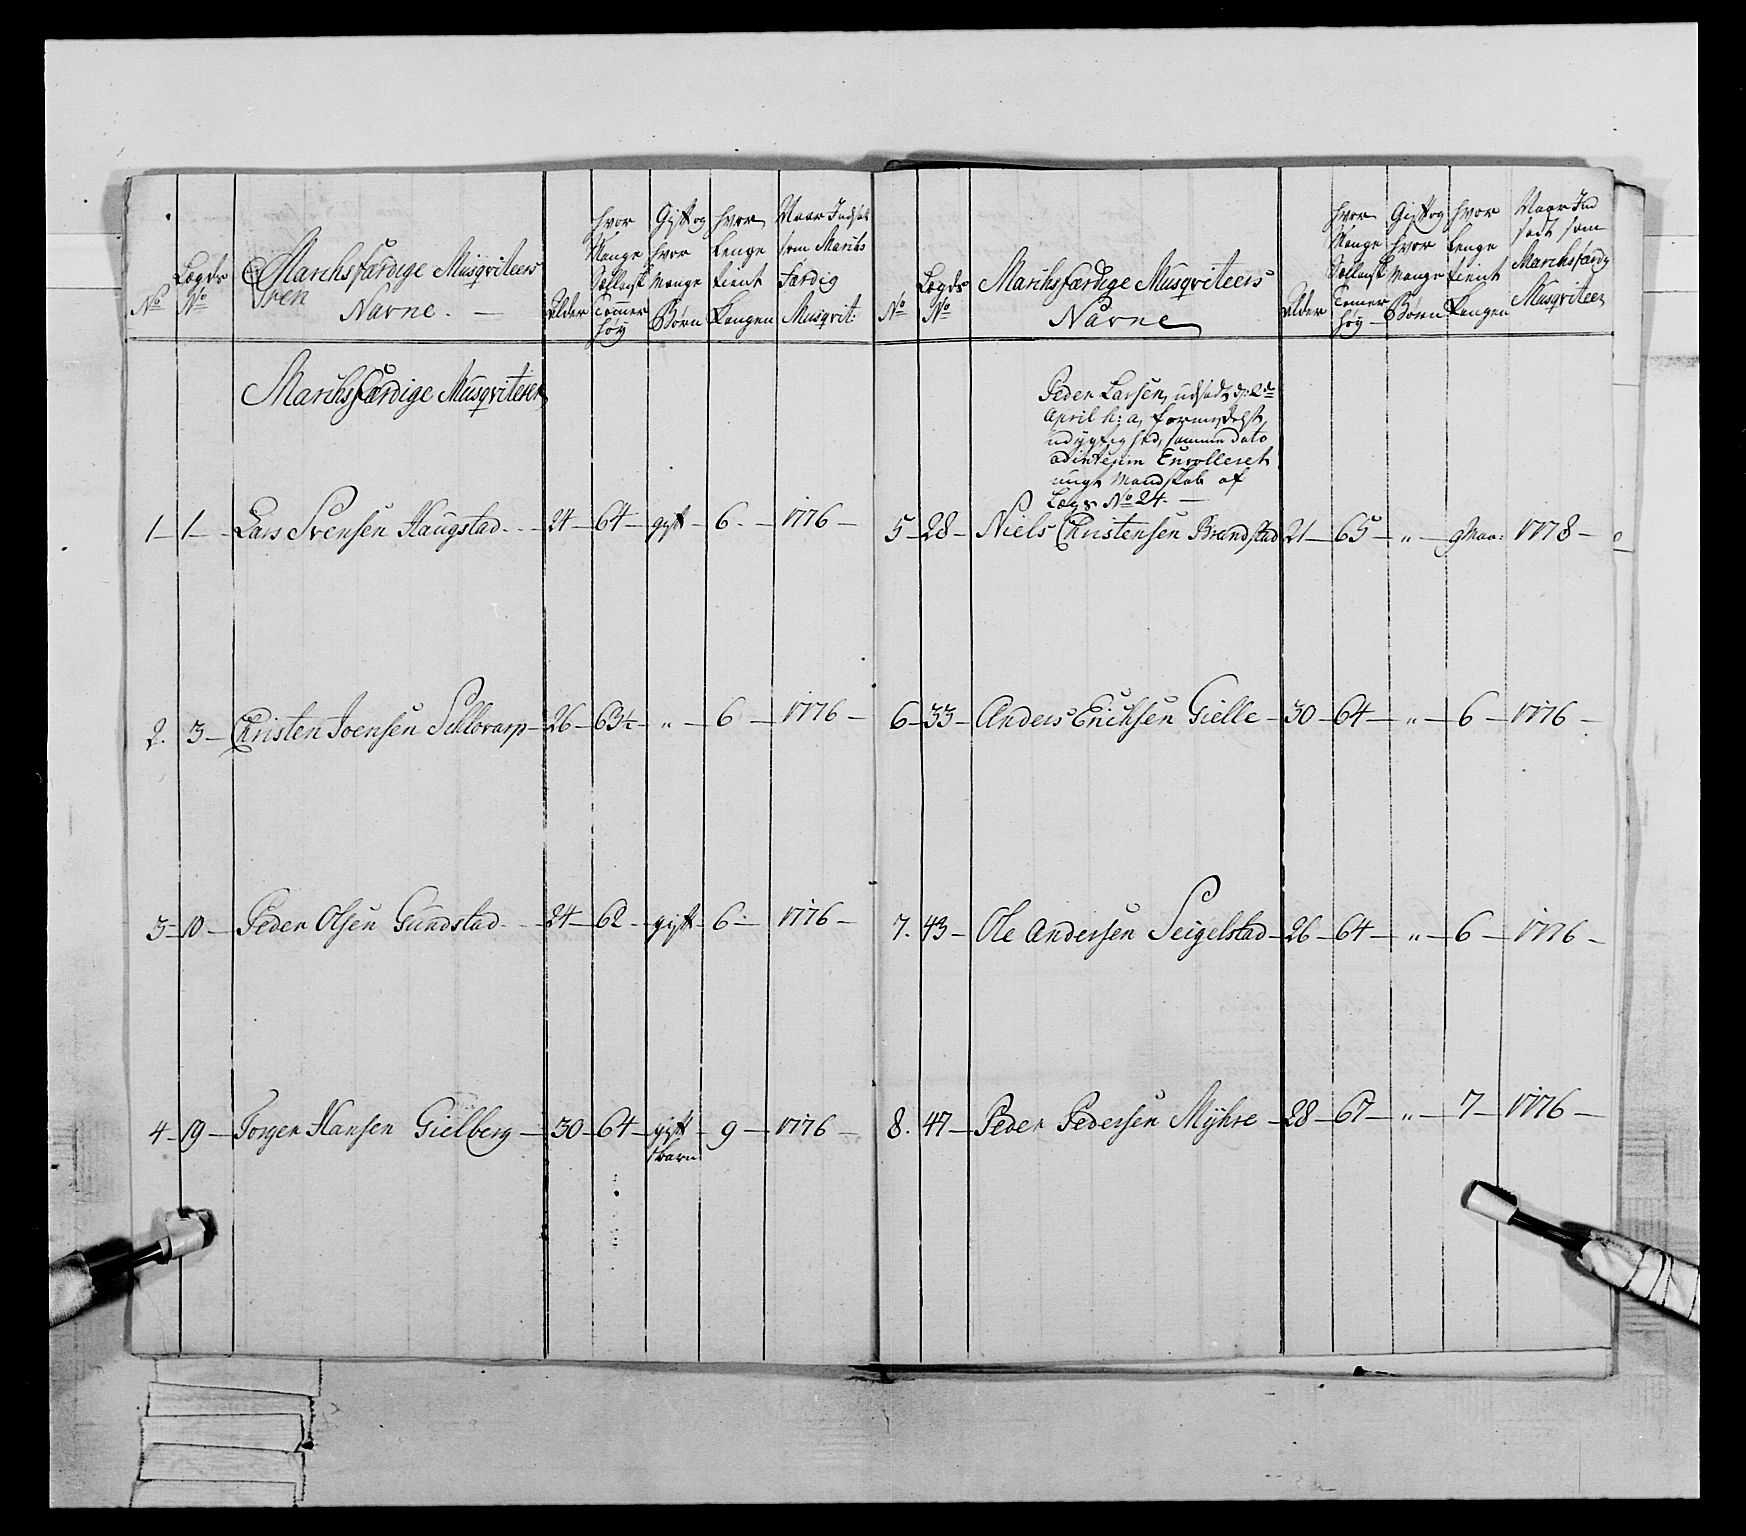 No
Legds No
Marchsfærdige Musqviteers
Navne.
Alder
hvor Mange Sællansk Tommer høy
Gift og hvor Mange Børn
hvor Lenge tient Kongen
Naar Indsat som Marchs Færdig Musqvit:
Marchsfærdige Musqviterer
1 — 1 — Lars Svensen Haugstad — 24 — 64 — gift — 6 — 1776 —
2. 3 — Christen Joensen Schlovarp — 26 — 63½ — " — 6 — 1776 —
3 — 10 — Peder Olsen Gundstad — 24 — 62 — gift — 6 — 1776 —
4 — 19 — Torger Hansen Gielberg — 30 — 64 — gift — 9 — 1776 —
1 barn
No
Legds No
Marchsfærdige Musqviteers
Navne
Alder
hvor Mange Sællansk Tommer høy
Gift og hvor Mange Børn
hvor Lenge tient Kongen
Naar Indsadt som Marchsfærdig Musqviteer
Peder Larsen, udsadt d: 2de
April h: a, formedelst
udygtighed, samme dato
ad interim Enrolleret
ungt Mandskab af
Legd No 24. —
5 — 28 — Niels Christensen Brandstad 21 — 65 — " — 9 Maa: 1778 —
6 — 33 — Anders Erichsen Gielle — 30 — 64 — " — 6 — 1776 —
7. 43 — Ole Andersen Seigelstad — 26 — 64 — " — 6 — 1776 —
8. 47 — Peder Pedersen Myhre — 28 — 67 — " — 7 — 1776 —